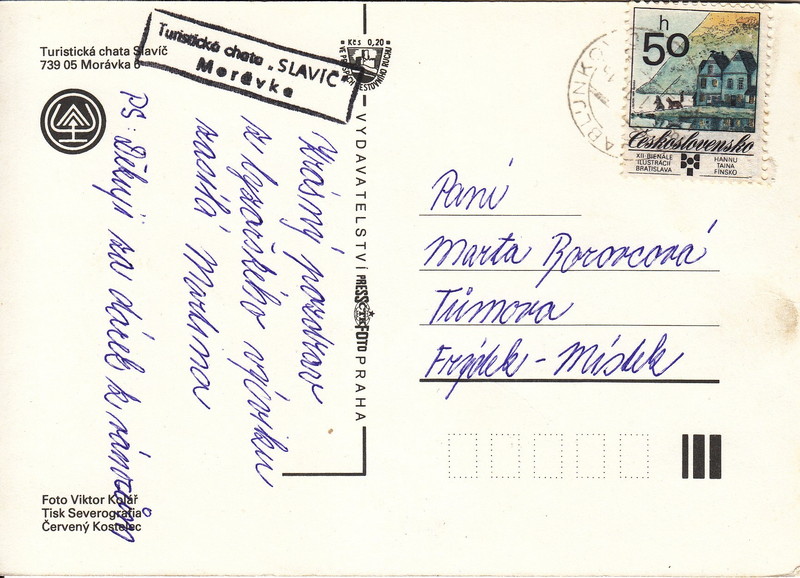 Turistická chata Slavíč
739 05 Morávka 6
Turistická chata „SLAVÍČ"
Morávka
Kčs 0,20
h
50
Československo
XII. BIENÁLE
ILUSTRÁCIÍ
BRATISLAVA
HANNU
TAINA
FÍNSKO
ABLUNKOV
Krásný pozdrav
z lyžařského výcviku
zasílá Martina
PS: Děkuji za dárek k
VYDAVATELSTVÍ PRESSFOTO PRAHA
Paní
Marta Borovcová
Tůmova
Frýdek - Místek
Foto Viktor Kolář
Tisk Severografia
Červený Kostelec